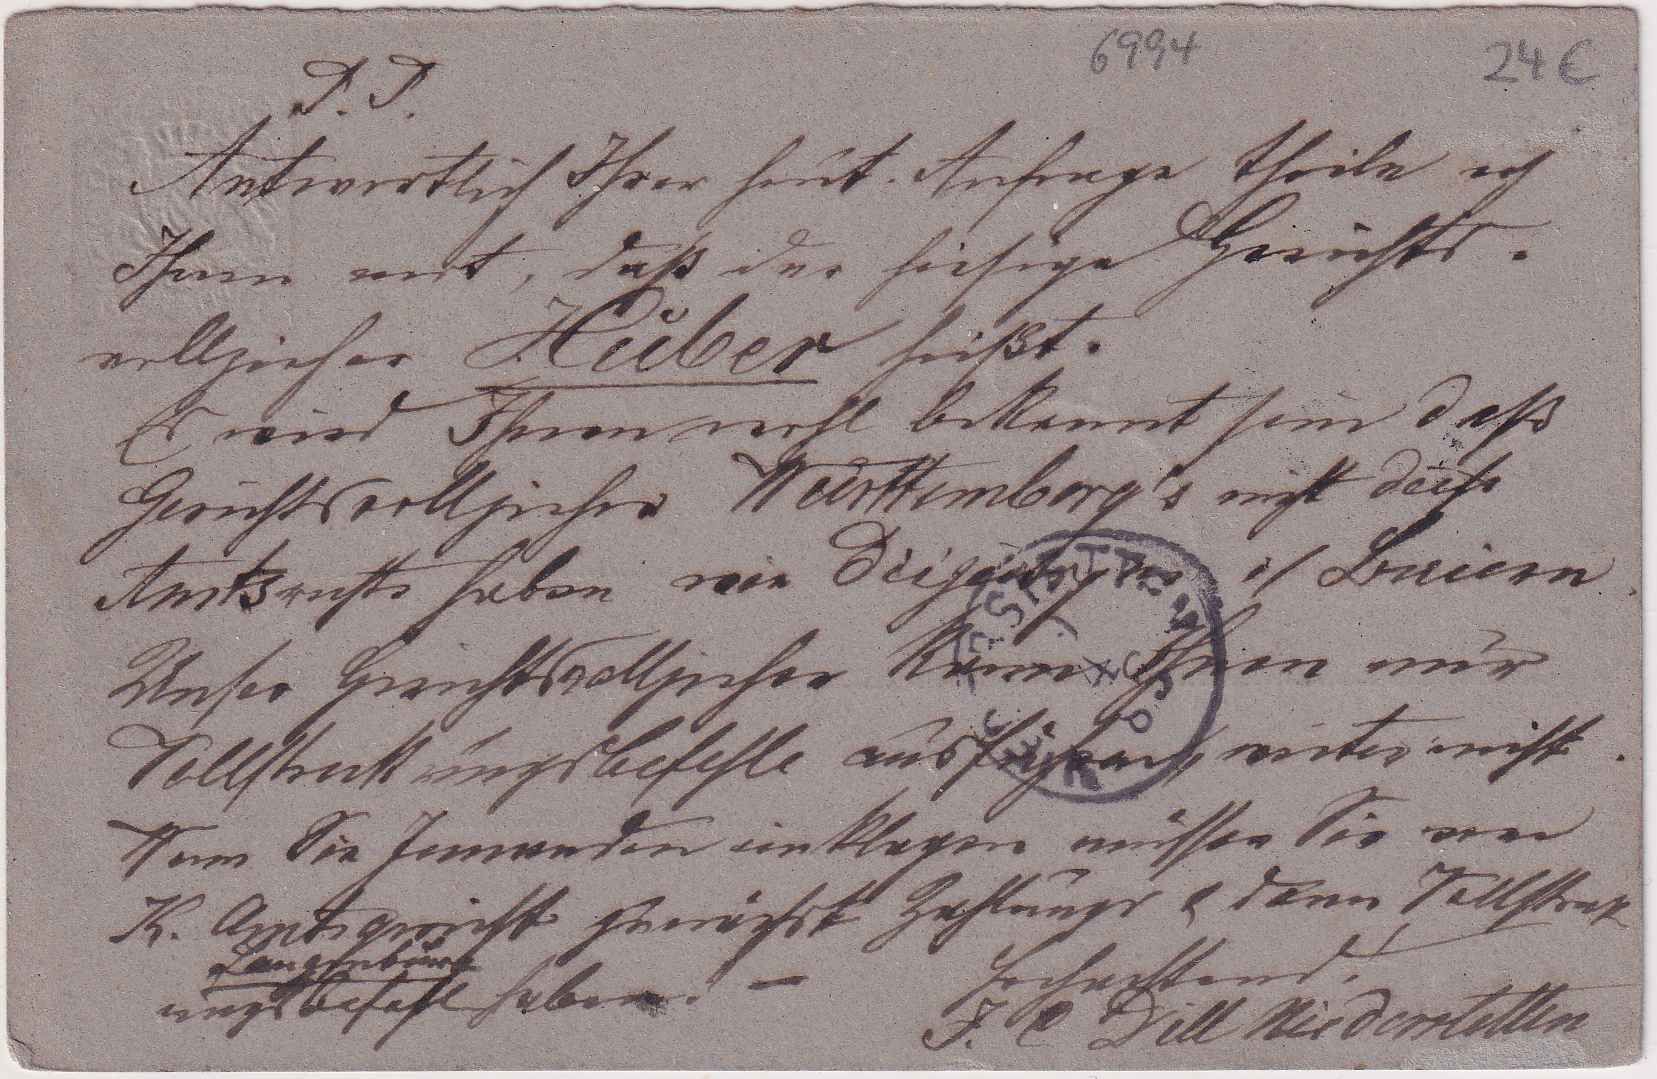 6994 24 €
P. P.
Antwortlich Ihrer heut. Anfrage theile ich
Ihnen mit, daß der hiesige Gerichts-
vollzieher Huber heißt.
Es wird Ihnen wohl bekannt sein daß
Gerichtsvollzieher Württemberg's nicht die
Amtsrechte haben wie Diejenigen i/ Baiern.
Unser Gerichtsvollzieher kann Ihnen nur
Vollstreckungsbefehle ausführen, weiter nicht.
Wenn Sie Jemanden einklagen müssen Sie vom
K. Amtsgericht zunächst Zahlungs & dann Vollstreck
Langenburg
ungsbefehl haben. –
Hochachtend.
J. C Dill Niederstetten